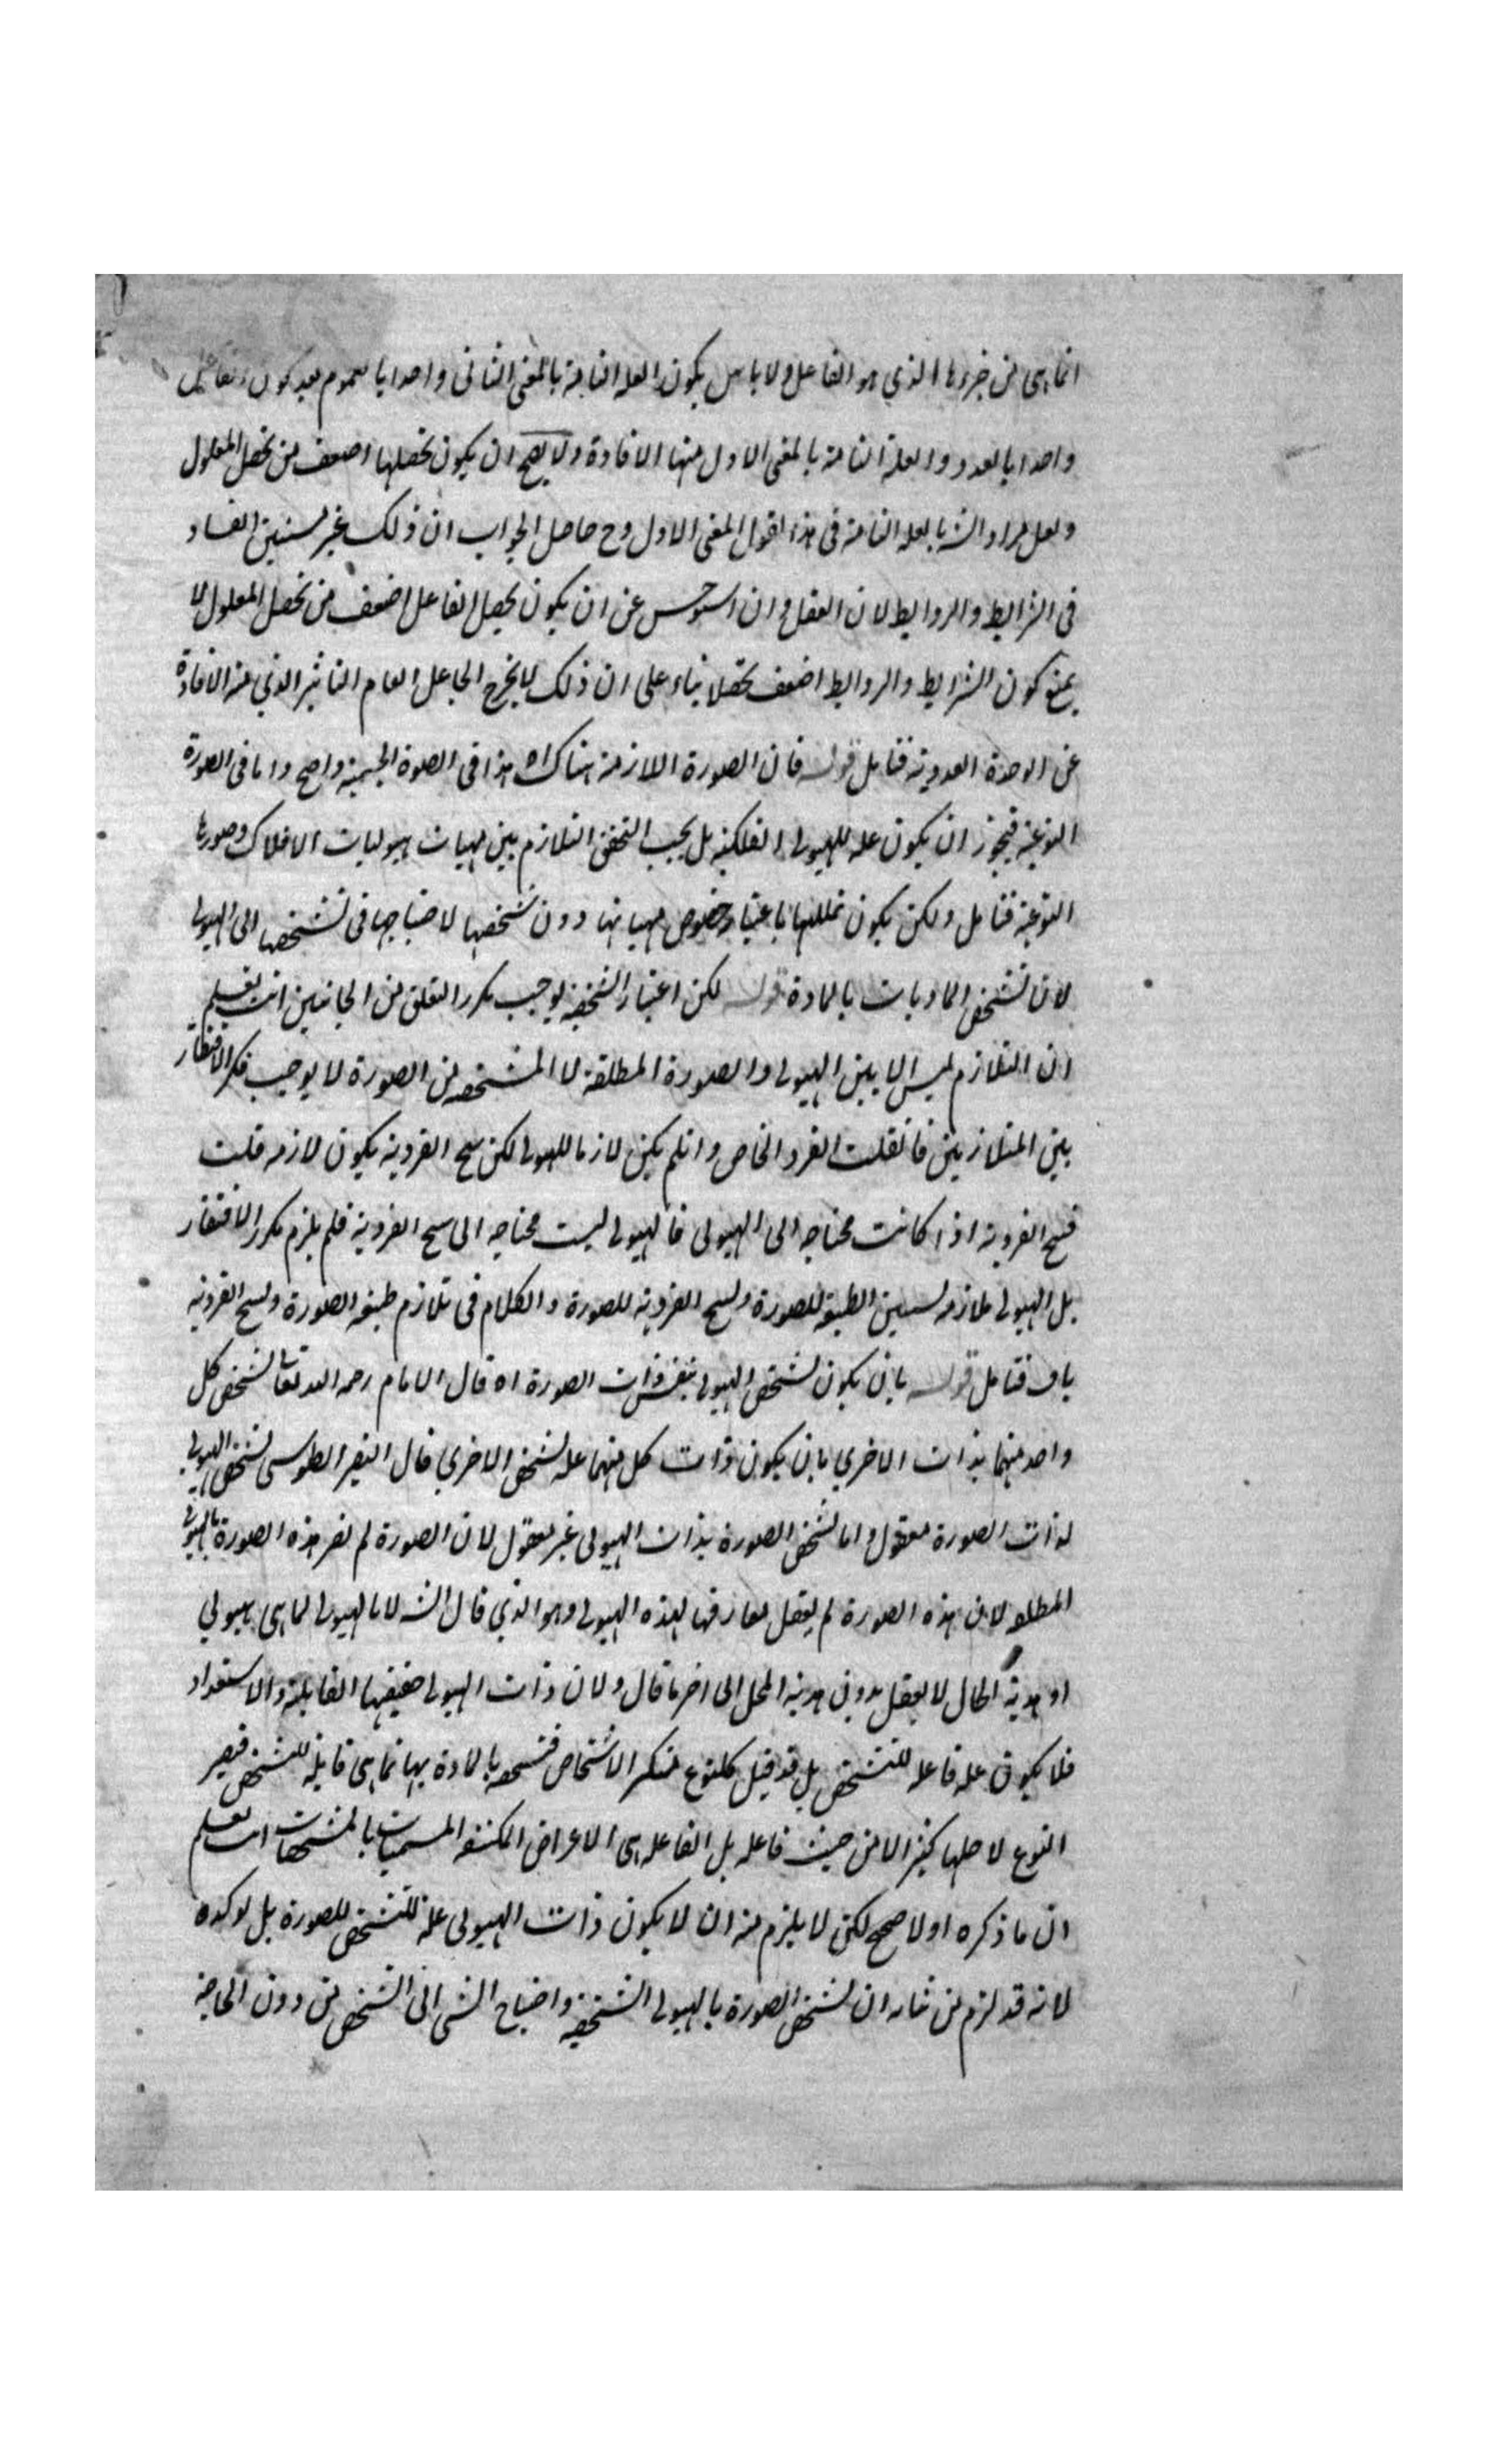 انما هي من جزءها الذي هو الفاعل ولا باس بكون العله التامة بالمعنى الثاني واحدا بالعموم بعد كون الفاعل
واحدا بالعدد والعلة التامة بالمعنى الاول منها الافادة ولا يصح ان يكون تحصلها اضعف من تحصل المعلول
ولعل مراد الش بالعله التامة في هذا القول المعنى الاول وح حاصل الجواب ان ذلك غير مستبين الفساد
في الشرايط والروابط لان العقل وان استوحش عن ان يكون تحصل الفاعل اضعف من تحصل المعلول لا
يمنع كون الشرايط والروابط اضعف تحصلا بناء على ان ذلك لا يخرج الجاعل العام التاثير الذي منه الافادة
عن الوحدة العددية فتامل قوله فان الصورة اللازمة هناك اه هذا في الصورة الجسمية واضح واما في الصورة
النوعية فيجوز ان يكون عله للهيولى الفلكية بل يجب التحقق التلازم بين مهيات هيوليات الافلاك وصورها
النوعية فتامل ولكن يكون عليتها باعتبار خصوص مهياتها دون تشخصها لاحتياجها في تشخصها الى الهيولى
لان تشخص الماديات بالمادة قوله لكن اعتبار الشخصية يوجب تكرر التعلق من الجانبين انت تعلم
ان التلازم ليس الا بين الهيولى والصورة المطلقة لا المشخصه من الصورة لا يوجب تكرر الافتقار
بين المتلازمين فان قلت الفرد الخاص وان لم يكن لازما للهيولى لكن سنح الفردية يكون لازمه قلت
فسنح الفردية اذا كانت محتاجه الى الهيولى فالهيولى ليست محتاجه الى سنح الفردية فلم يلزم تكرر الافتقار
بل الهيولى ملازمه لسببين الطبيعه للصورة ولسنح الفردية للصورة والكلام في تلازم طبيعه الصورة ولسنح الفردية
باق فتامل قوله بان يكون تشخص الهيولى بنفس ذات الصورة اه قال الامام رحمه الله تعالى تشخص كل
واحد منهما بذات الاخرى بان يكون ذات كل منهما عله لتشخص الاخرى قال النصير الطوسي تشخص الهيولى
لذات الصورة معقول واما تشخص الصورة بذات الهيولى غير معقول لان الصورة لم تصر هذه الصورة بالهيولى
المطلقه لان هذه الصورة لم يعقل مفارقها لهذه الهيولى وهو الذي قال الش لا بالهيولى لما هي هيولى
او هذية الحال لا يعقل بدون هذية المحل الى اخر ما قال ولان ذات الهيولى حقيقتها القابلية والاستعداد
فلا يكون عله فاعله للتشخص بل قد قيل كل نوع متكثر الاشخاص فتشخصه بالمادة بها انما هي قابلة للتشخص فيصير
النوع لاجلها كثيرا لا من حيث فاعله بل الفاعله هي الاعراض المكتنفه المسميات بالمشخصات انت تعلم
ان ما ذكره اولا صحيح لكن لا يلزم منه ان لا يكون ذات الهيولى علة للتشخص للصورة بل توكده
لانه قد لزم من بيانه ان تشخص الصورة بالهيولى الشخصية واحتياج الشي الى الشخص من دون الحاجة